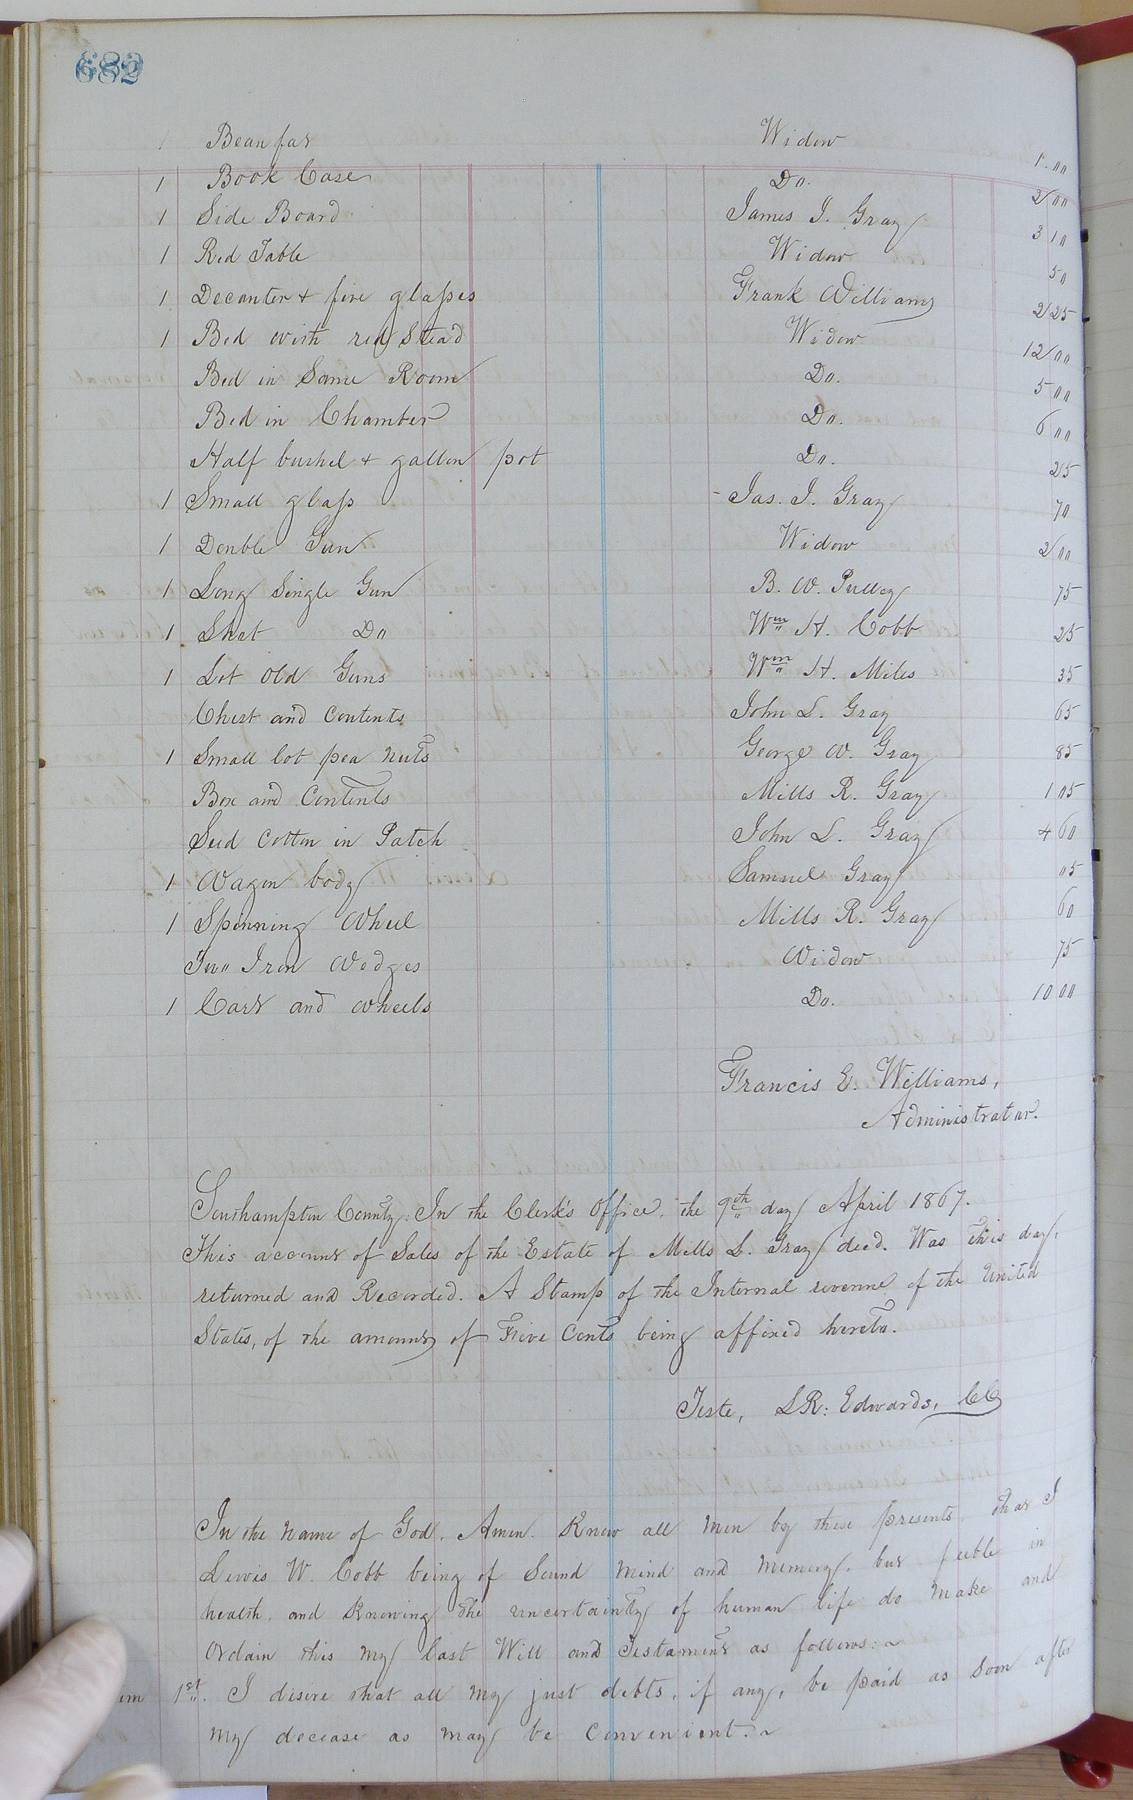 682
1 Bean jar Widow 1.00
1 Book Case Do. 2 00
1 Side Board James J. Gray 3 10
1 Red Table Widow 50
1 Decanter + five glasses Frank Williams 2 25
1 Bed with red Stead Widow 12 00
Bed in Same Room Do. 5 00
Bed in Chamber Do. 6 00
Half bushel + gallon pot Do. 25
1 Small glass Jas. J. Gray 70
1 Double Gun Widow 2 00
1 Long Single Gun B. W. Pulley 75
1 Shot Do Wm H. Cobb 25
1 Lot Old Guns Wm H. Miles 35
Chest and Contents John L. Gray 65
1 Small lot pea nuts George W. Gray 85
Box and Contents Mills R. Gray 1 05
Seed Cotton in Patch John L. Gray 4 60
1 Wagon body Samuel Gray 05
1 Spinning Wheel Mills R. Gray 60
Two Iron Wedges Widow 75
1 Cart and wheels Do. 10 00
Francis E. Williams,
Administrator.
Southampton County: In the Clerk's Office, the 9th day April 1867.
This account of Sales of the Estate of Mills L. Gray decd. Was this day,
returned and Recorded. A Stamp of the Internal revenue of the United
States, of the amount of Five Cents being affixed hereto.
Teste, L R: Edwards, CC
In the name of God, Amen. Know all men by these presents, that I
Lewis W. Cobb being of Sound mind and memory, but feeble in
health, and Knowing the uncertainty of human life do make and
Ordain this my last Will and Testament as follows:~
1st. I desire that all my just debts, if any, be paid as soon after
my decease as may be convenient.~